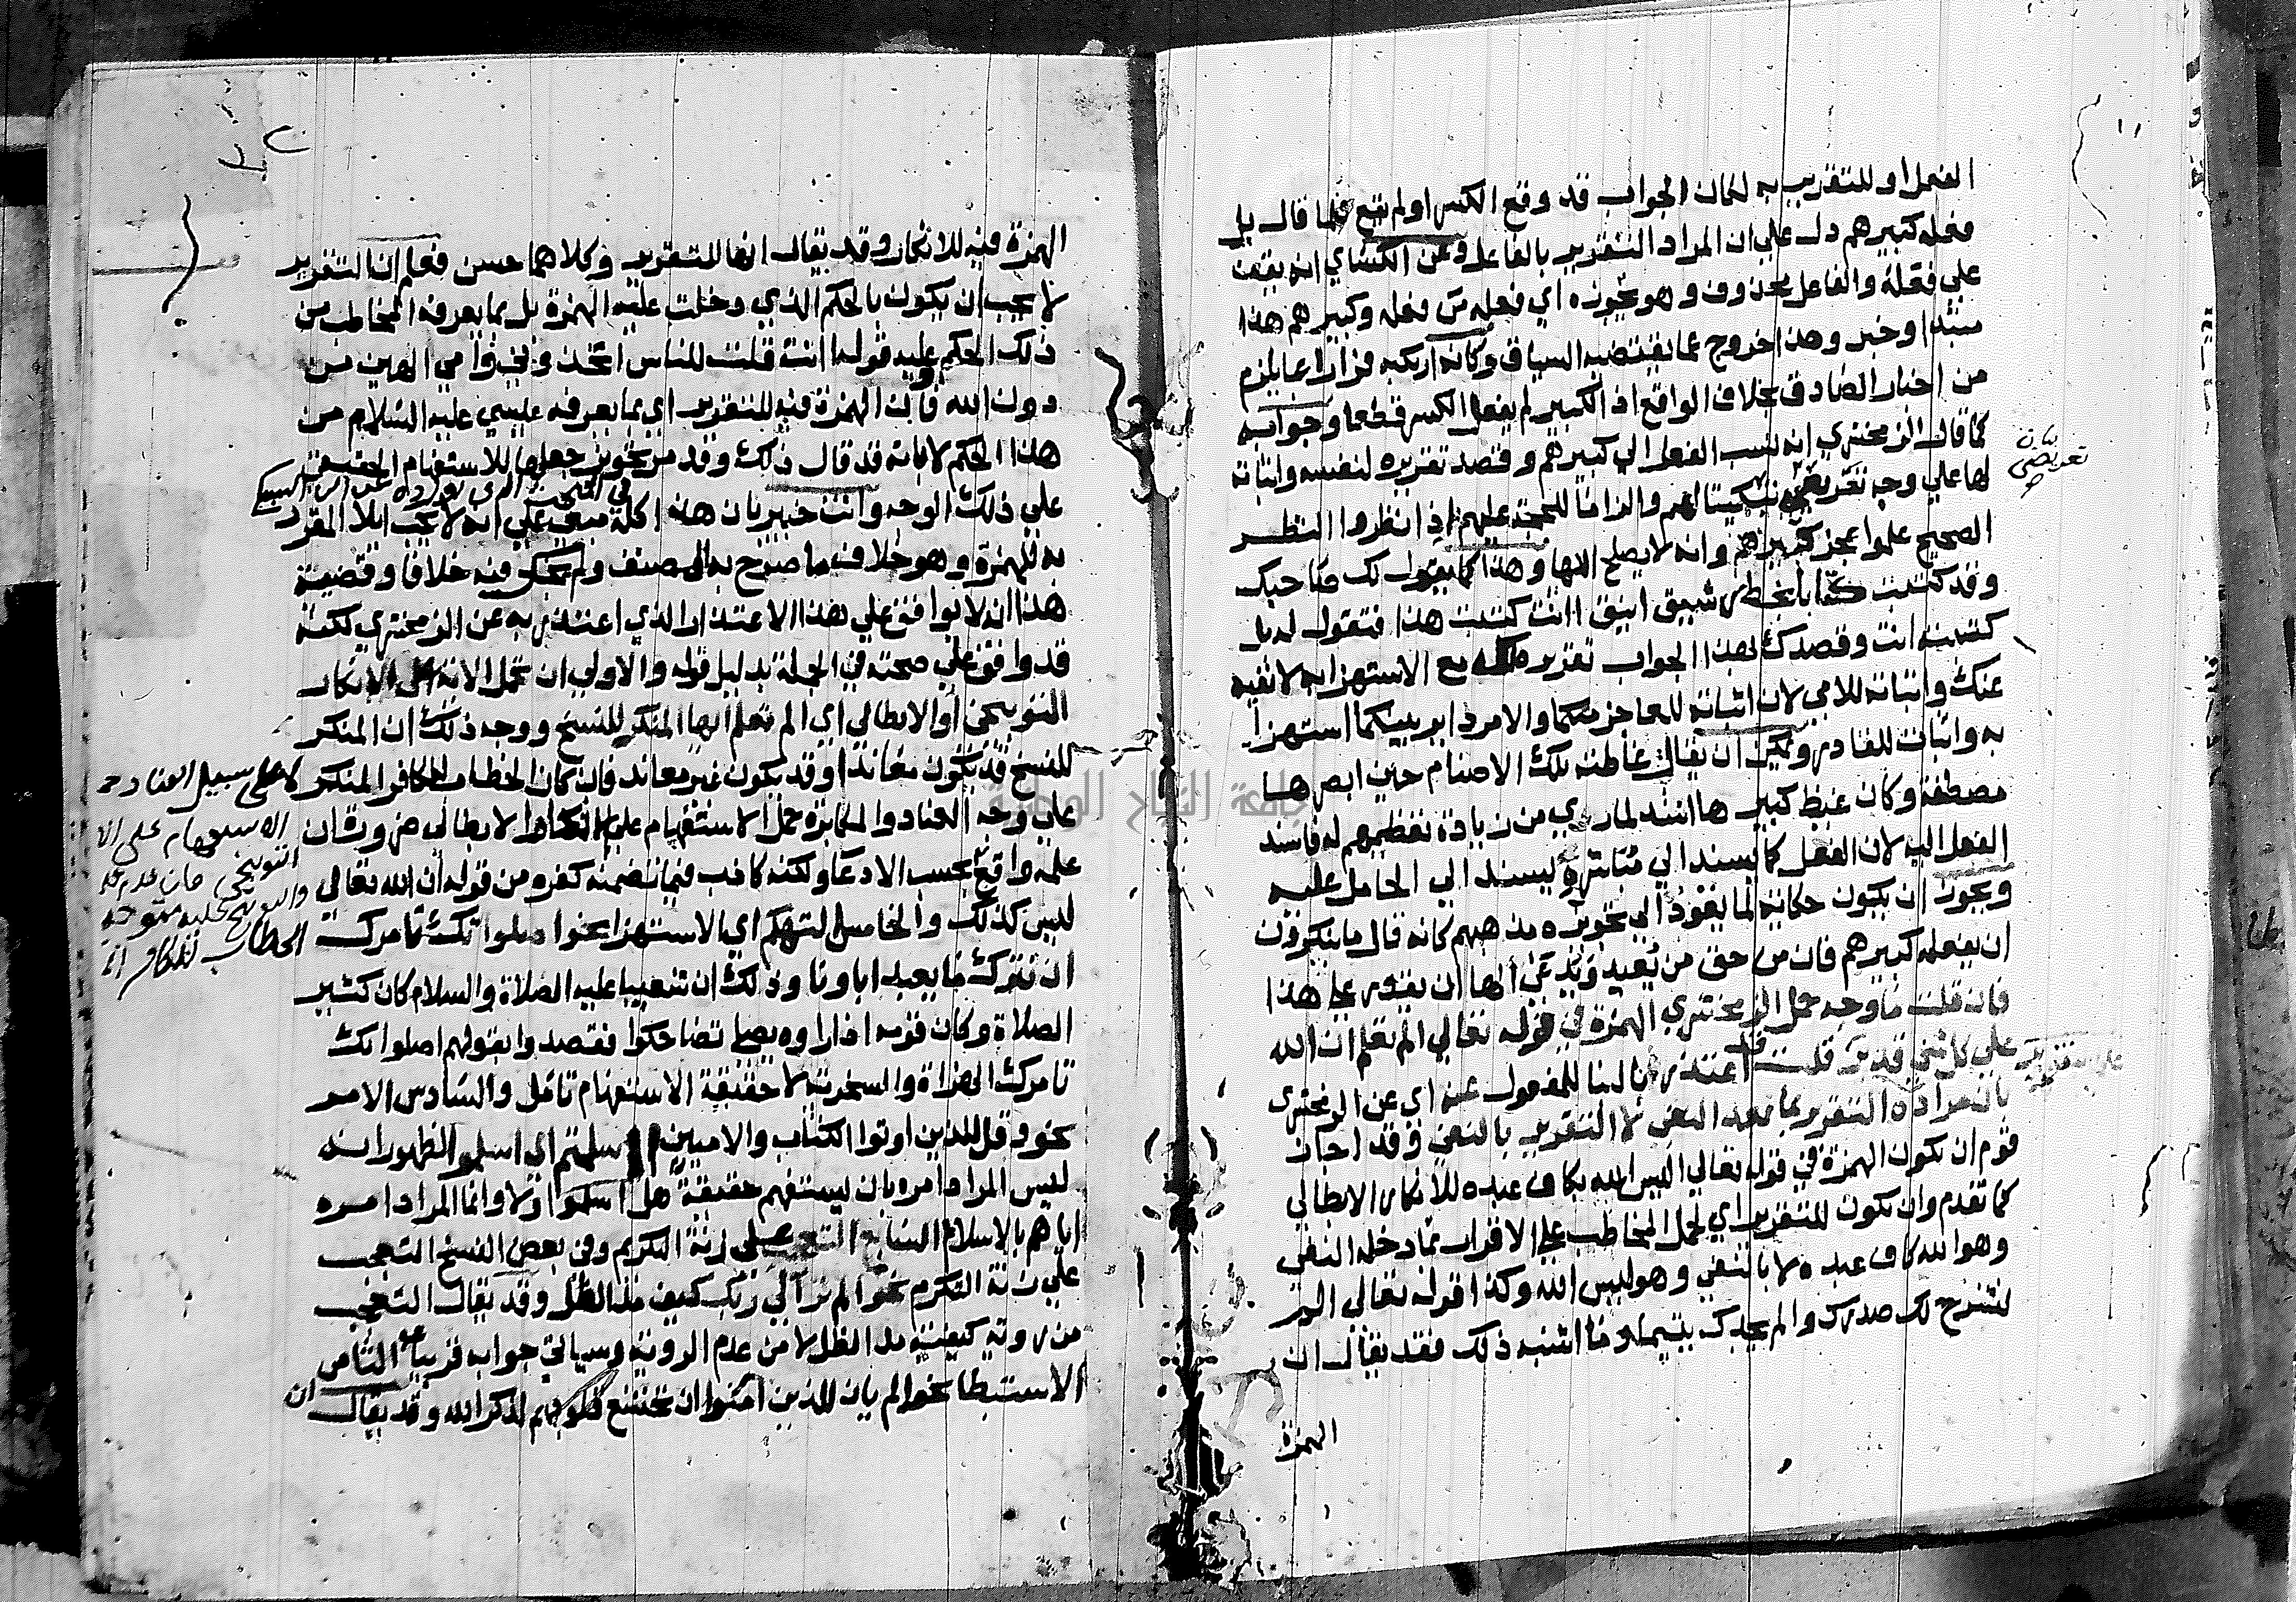 الفعل او للتقريب به لكان الجواب قد وقع الكسر او لم يقع فلما قال بل
فعله كبيرهم دل علي ان المراد التقرير بالفاعل وعن الكسائي انه يقف
علي فعله والفاعل محذوف وهو بجوزه اي فعله من فعله وكبيرهم هذا
مبتدا وخبر وهذا خروج عما يقتضيه السياق وكانه ارتكبه فرارا عما يلزم
من اخبار الصادق بخلاف الواقع اذ الكبير لم يفعل الكسر قطعا وجوابه
كما قال الزمخشري انه نسب الفعل الي كبيرهم وقصد تقريره لنفسه واثباته
لها علي وجه تعريضي تبكيتا لهم والزاما للحجة عليهم اذا نظروا النظر
بيان
تعريضي
الصحيح علموا عجز كبيرهم وانه لا يصلح الها وهذا كما يقول لك صاحبك
وقد كتبت كتابا بخط رشيق انيق اانت كتبت هذا فتقول له بل
كتبته انت وقصدك بهذا الجواب تقريره لك مع الاستهزا به لا نفيه
عنك واثباته للامي لان اثباته للعاجز منكما والامر داير بينكما استهزا
به واثبات للقادر ويمكن ان يقال غاظته تلك الاصنام حين ابصرها
مصطفة وكان غيظ كبيرها اشد لما راي من زيادة تعظيمهم له فاسند
الفعل اليه لان الفعل كما يسند الي مباشره يسند الي الحامل عليه
ويجوز ان يكون حكاية لما يقود الي تجويزه مذهبهم كانه قال ما تنكرون
ان يفعله كبيرهم فان من حق من يعبد ويدعي الها ان يقدر علي هذا
فان قلت ما وجه حمل الزمخشري الهمزة في قوله تعالي الم تعلم ان الله
علي كل شي قدير قلت قد اعتذر بالبنا للمفعول عنه اي عن الزمخشري
بان مراده التقرير بما بعد النفي لا التقرير بالنفي وقد اجاز
قوم ان تكون الهمزة في قوله تعالي اليس الله بكاف عبده للانكار الابطالي
كما تقدم وان تكون للتقرير اي لحمل المخاطب علي الاقرار بما دخله النفي
وهو الله كاف عبده لا بالنفي وهو ليس الله وكذا قوله تعالي الم
نشرح لك صدرك والم يجدك يتيما وما اشبه ذلك فقد يقال ان
الهمزة
الهمزة فيه للانكار وقد يقال انها للتقرير وكلاهما حسن فعلم ان التقرير
لا يجب ان يكون بالحكم الذي دخلت عليه الهمزة بل بما يعرفه المخاطب من
ذلك الحكم وعليه قوله اانت قلت للناس اتخذوني وامي الهين من
دون الله فان الهمزة فيه للتقرير اي بما يعرفه عيسي عليه السلام من
هذا الحكم لا بانه قد قال ذلك وقد مر تجويز جعلها للاستفهام الحقيقي
علي ذلك الوجه وانت خبير بان هذا كله مبني علي انه لا يجب ايلا المقرر
به للهمزة وهو خلاف ما صرح به المصنف ولم يحك فيه خلافا وقضية
هذا انه لا يوافق علي هذا الاعتذار الذي اعتذر به عن الزمخشري لكنه
قد وافق علي صحته في الجملة بدليل قوله والاولي ان تحمل الاية علي الانكار
التوبيخي او الابطالي اي الم تعلم ايها المنكر للنسخ ووجه ذلك ان المنكر
للنسخ قد يكون معاندا وقد يكون غير معاند فان كان الخطاب للكافر المنكر
لا علي سبيل العناد حمل
الاستفهام علي الا
التوبيخي
الخطاب للكافر
علي وجه العناد والمكابرة حمل الاستفهام علي الانكار الابطالي ضرورة ان
علمه واقع بحسب الادعا ولكنه كاذب فيما تضمنه كفره من قوله ان الله تعالي
ليس كذلك والخامس التهكم اي الاستهزا نحو اصلواتك تامرك
ان نترك ما يعبد اباونا وذلك ان شعيبا عليه الصلاة والسلام كان كثير
الصلاة وكان قومه اذا راوه يصلي تضاحكوا فقصدوا بقولهم اصلواتك
تامرك الهزاة والسخرية لا حقيقة الاستفهام تامل والسادس الامر
نحو وقل للذين اوتوا الكتاب والاميين ااسلمتم اي اسلموا لظهور انه
ليس المراد امره بان يستفهم حقيقة هل اسلموا اولا وانما المراد امره
اياهم بالاسلام السابع التعجب علي زنة التكرم وفي بعض النسخ التعجيب
علي زنة التكريم نحو الم تر الي ربك كيف مد الظل وقد يقال التعجب
من روية كيفية مد الظل لا من عدم الروية وسياتي جوابه قريبا الثامن
الاستبطا نحو الم يان للذين امنوا ان تخشع قلوبهم لذكر الله وقد يقال ان
جامعة النجاح الوطنية